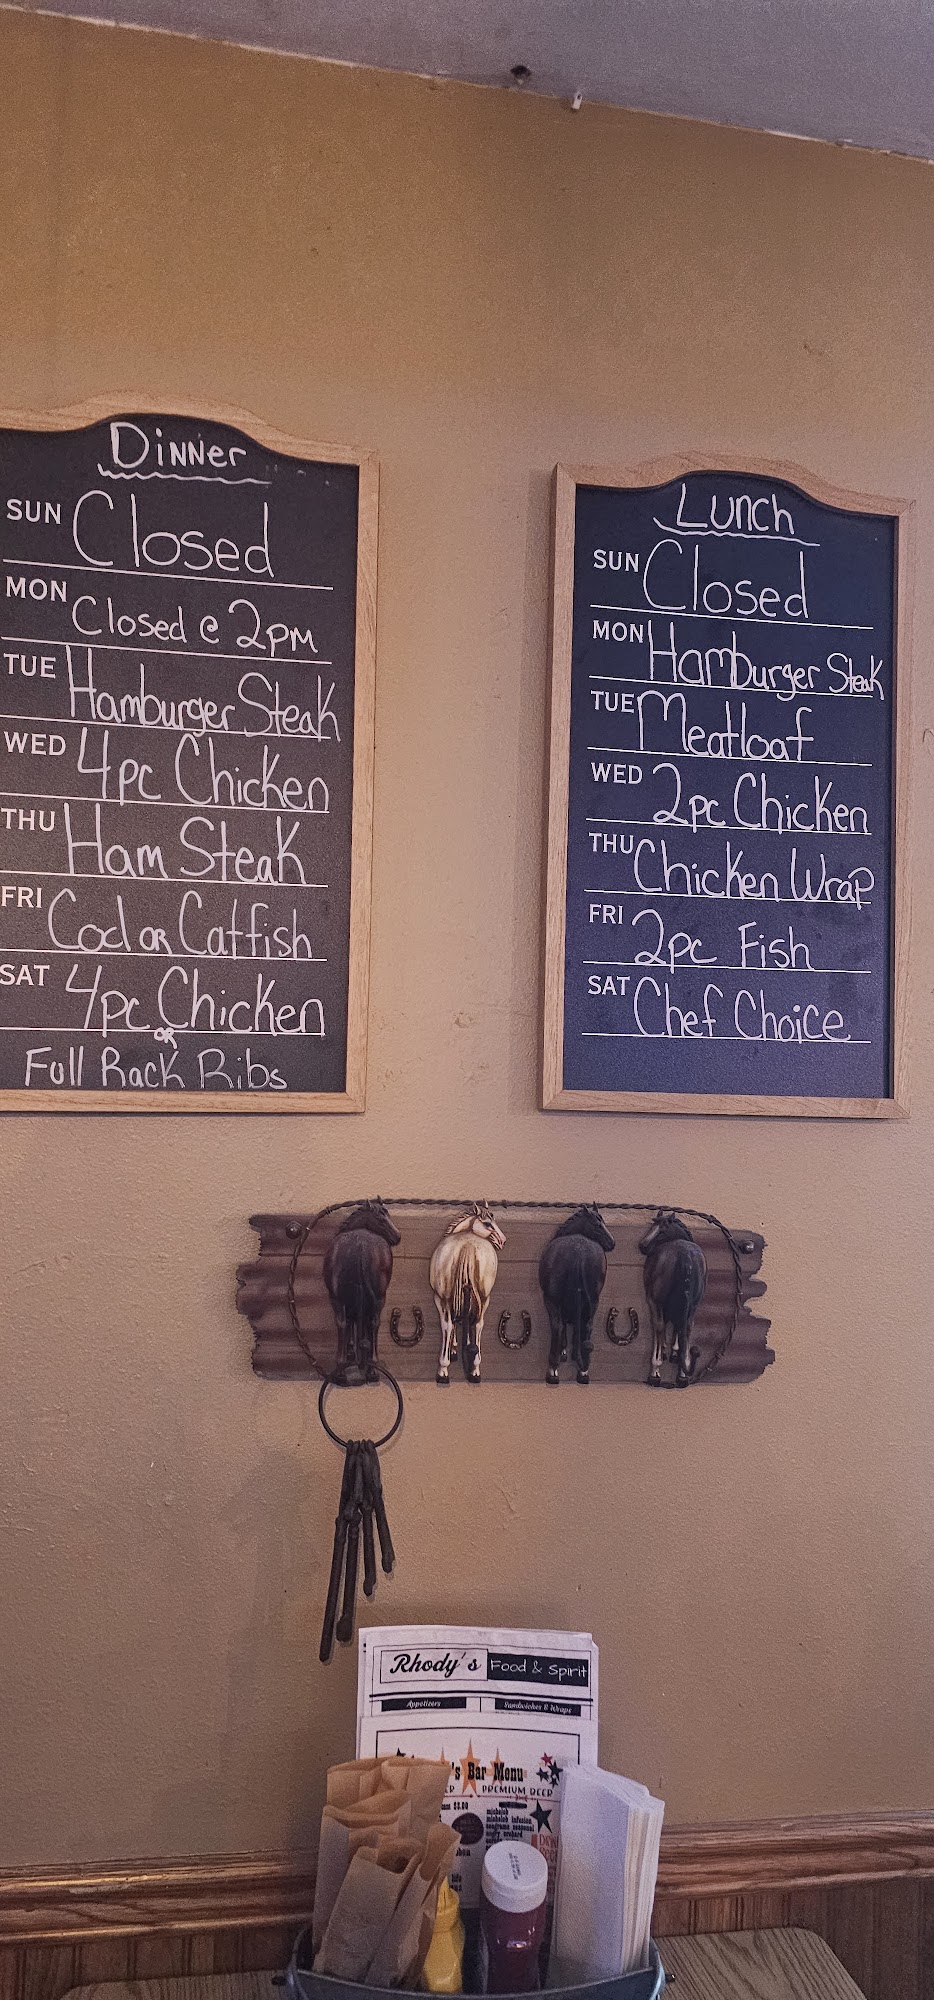 Dinner
SUN Closed
MON Closed @ 2pm
TUE Hamburger Steak
WED 4pc Chicken
THU Ham Steak
FRI Cod or Catfish
SAT 4pc Chicken
or
Full Rack Ribs
Lunch
SUN Closed
MON Hamburger Steak
TUE Meatloaf
WED 2pc Chicken
THU Chicken Wrap
FRI 2pc Fish
SAT Chef Choice
Rhody's Food & Spirit
Appetizers Sandwiches & Wraps
's Bar Menu
PREMIUM BEER
michelob
michelob infusion
seagrams seasonal
angry orchard